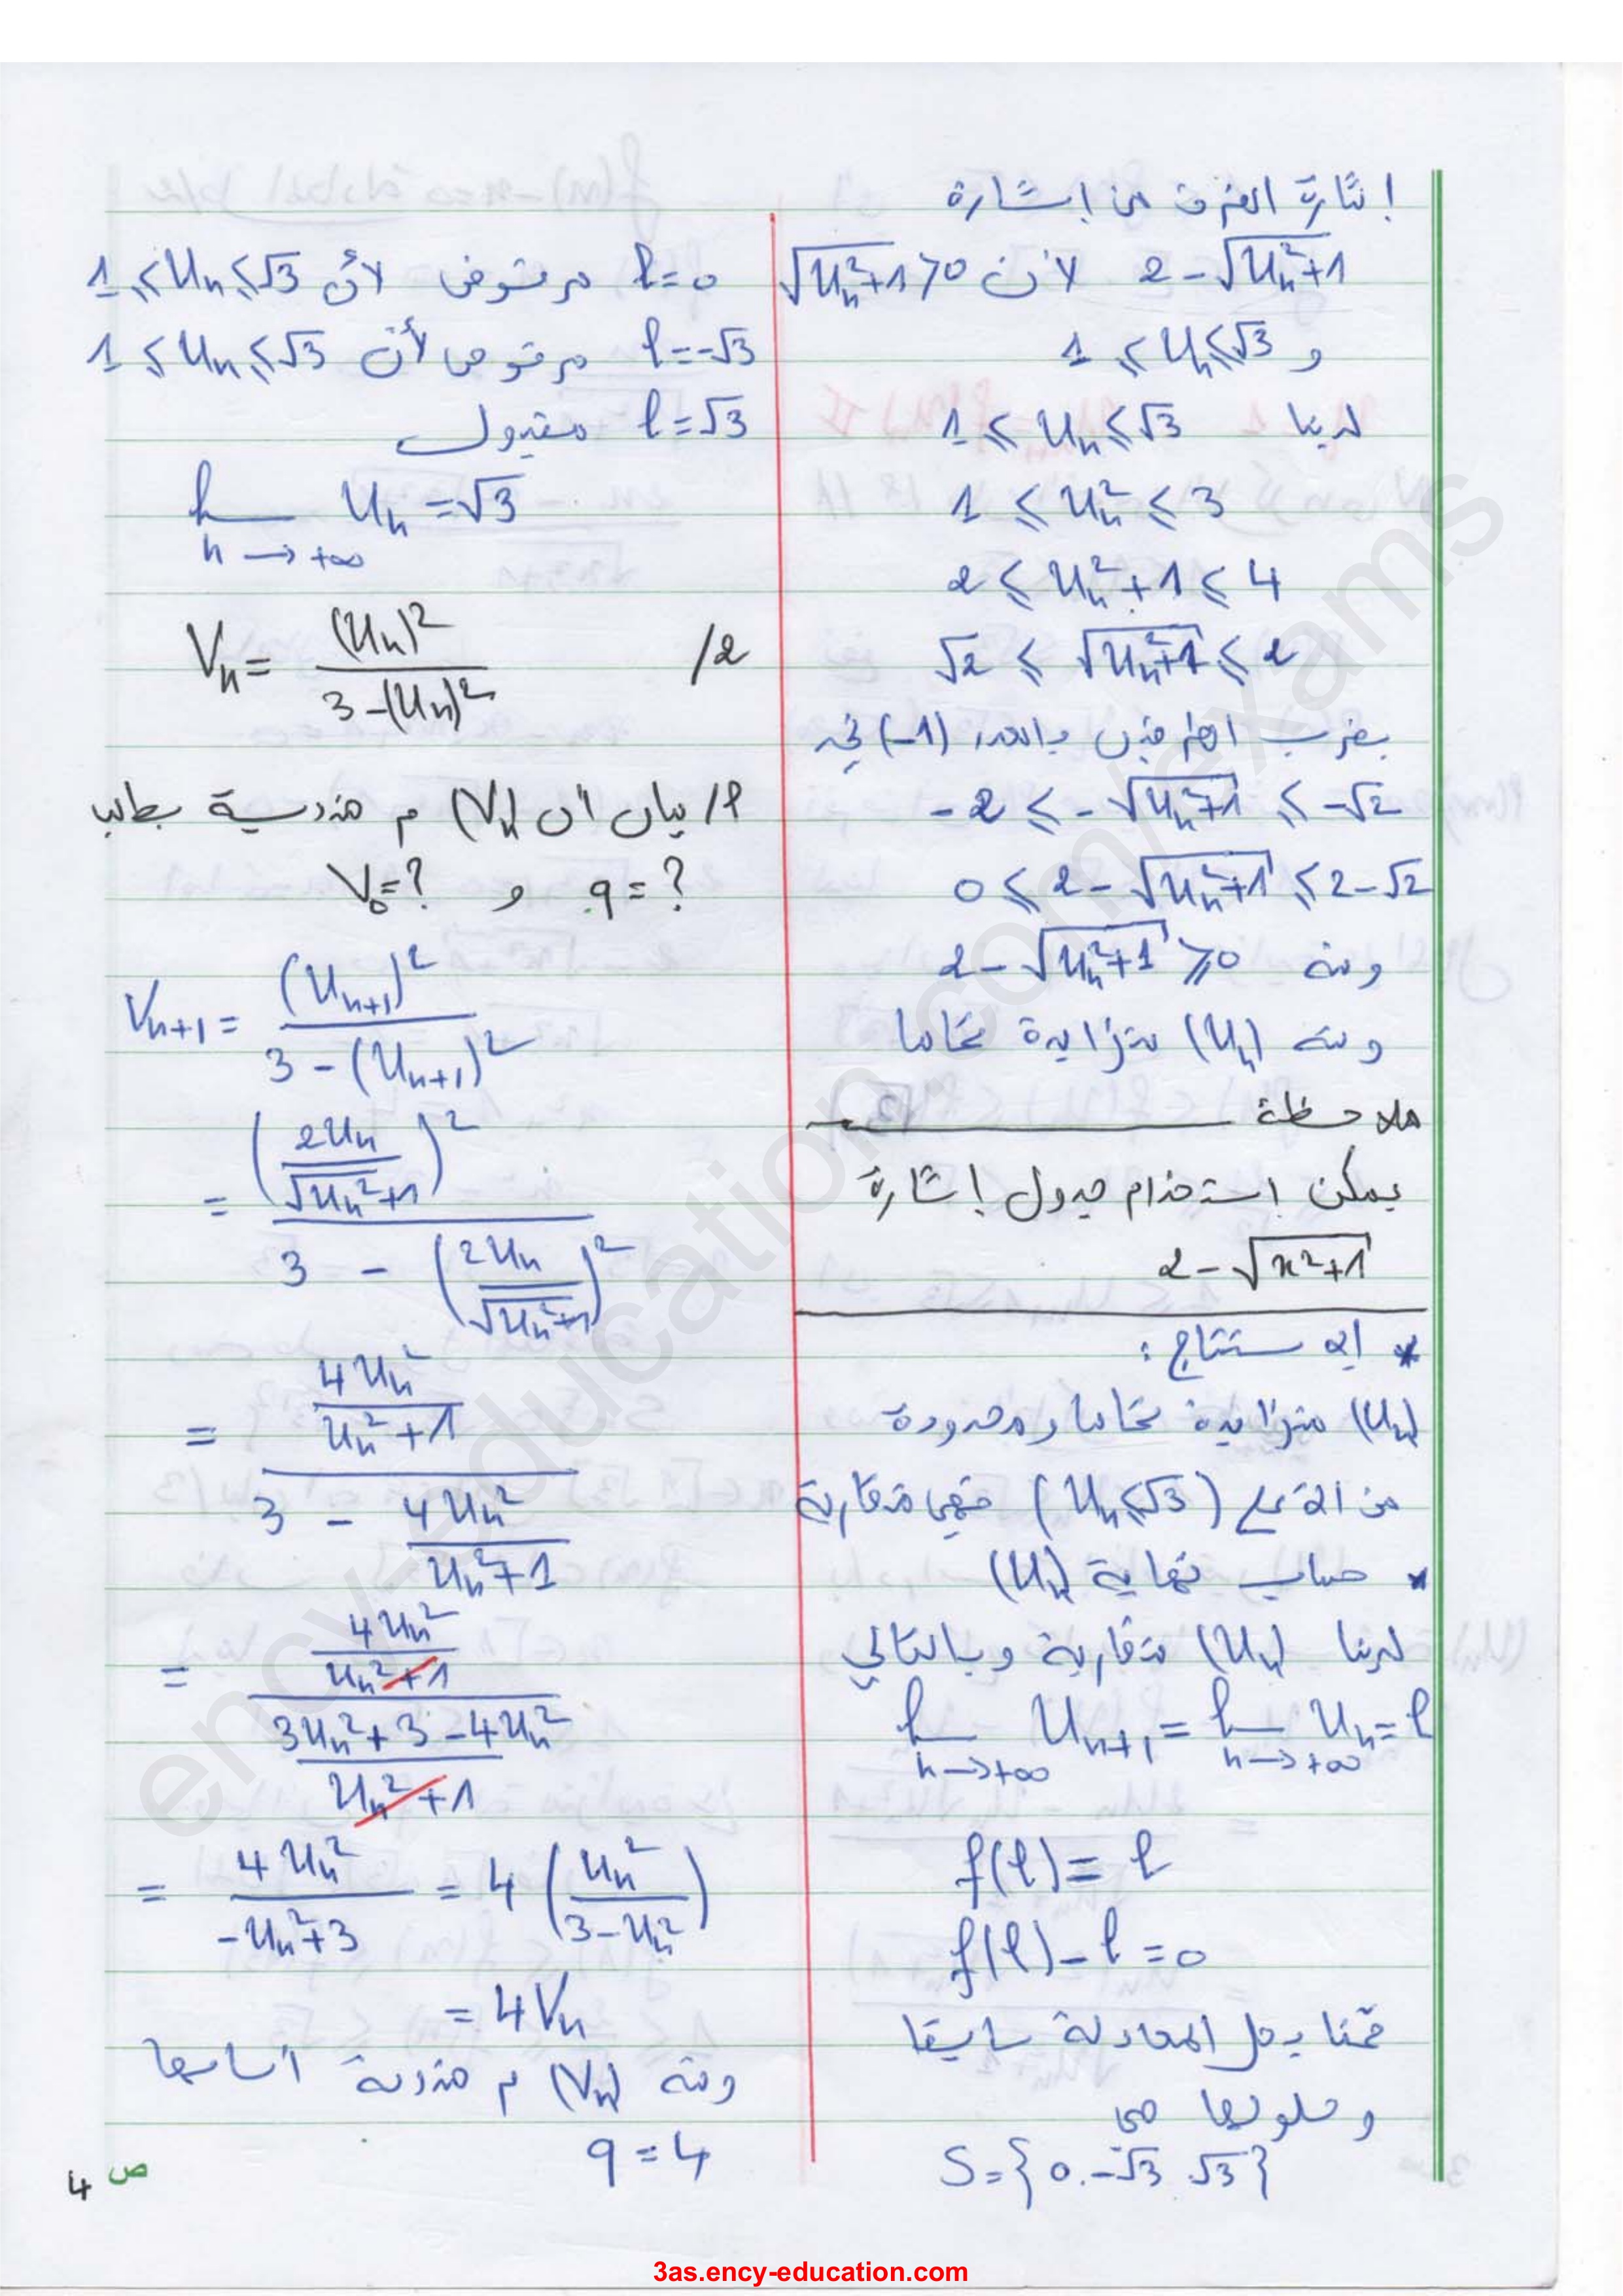 إشارة الفرق من إشارة
2 - √(Uₙ²+1) لأن √(Uₙ²+1) > 0
و 1 ≤ Uₙ ≤ √3
لدينا 1 ≤ Uₙ ≤ √3
1 ≤ Uₙ² ≤ 3
2 ≤ Uₙ² + 1 ≤ 4
√2 ≤ √(Uₙ²+1) ≤ 2
بضرب الطرفين بالعدد (-1) نجد
-2 ≤ -√(Uₙ²+1) ≤ -√2
0 ≤ 2 - √(Uₙ²+1) ≤ 2 - √2
ومنه 2 - √(Uₙ²+1) ≥ 0
ومنه (Uₙ) متزايدة تماما
ملاحظة
يمكن استخدام جدول إشارة
2 - √(x²+1)
* الاستنتاج :
(Uₙ) متزايدة تماما ومحدودة
من الأعلى (Uₙ ≤ √3) فهي متقاربة
* حساب نهاية (Uₙ)
لدينا (Uₙ) متقاربة وبالتالي
lim n→+∞ Uₙ₊₁ = lim n→+∞ Uₙ = l
f(l) = l
f(l) - l = 0
قمنا بحل المعادلة سابقا
وحلولها هي
S = {0 . -√3 . √3}
l = 0 مرفوض لأن 1 ≤ Uₙ ≤ √3
l = -√3 مرفوض لأن 1 ≤ Uₙ ≤ √3
l = √3 مقبول
lim n→+∞ Uₙ = √3
2/ Vₙ = (Uₙ)² / (3 - (Uₙ)²)
أ/ بيان أن (Vₙ) م هندسية يطلب
q = ? و V₀ = ?
Vₙ₊₁ = (Uₙ₊₁)² / (3 - (Uₙ₊₁)²)
= (2Uₙ / √(Uₙ²+1))² / (3 - (2Uₙ / √(Uₙ²+1))²)
= (4Uₙ² / (Uₙ²+1)) / (3 - 4Uₙ² / (Uₙ²+1))
= (4Uₙ² / (Uₙ²+1)) / ((3Uₙ² + 3 - 4Uₙ²) / (Uₙ²+1))
= 4Uₙ² / (-Uₙ²+3) = 4 (Uₙ² / (3 - Uₙ²))
= 4Vₙ
ومنه (Vₙ) م هندسية أساسها
q = 4
ص 4
ency-education.com/exams
3as.ency-education.com